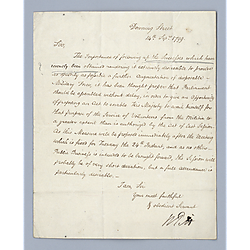 Downing Street
14th Sept. 1799.
Sir,
The Importance of following up the Successes which have
recently been obtained rendering it extremely desirable to provide
as speedily as possible a further Augmentation of disposable
Military Force, it has been thought proper that Parliament
should be assembled without delay, in order to give an Opportunity
of proposing an Act to enable His Majesty to avail himself for
that purpose of the Service of Volunteers from the Militia to
a greater extent than is authorized by the Act of last Session.
As this Measure will be proposed immediately after the Meeting
which is fixed for Tuesday the 24th Instant, and as no other
Public Business is intended to be brought forward, the Session will
probably be of very short duration, but a full attendance is
particularly desirable.
I am Sir
Your most faithful
Obedient Servant
W Pitt